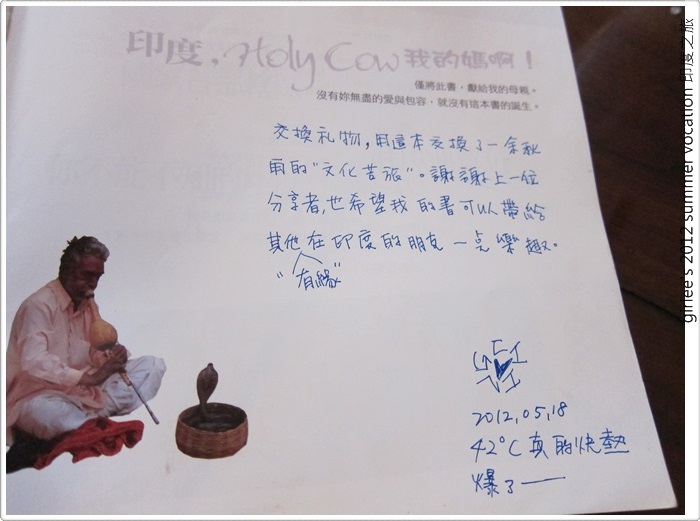 印度，Holy Cow 我的媽啊！
僅將此書，獻給我的母親。
沒有妳無盡的愛與包容，就沒有這本書的誕生。
交換礼物，用這本交換了一余秋
雨的"文化苦旅"。謝謝上一位
分享者，也希望我的書可以帶給
其他在印度的朋友一点樂趣。
"有緣"
2012,05,18
42°C 真的快熱
爆了——
girlee's 2012 summer vocation 印度之旅